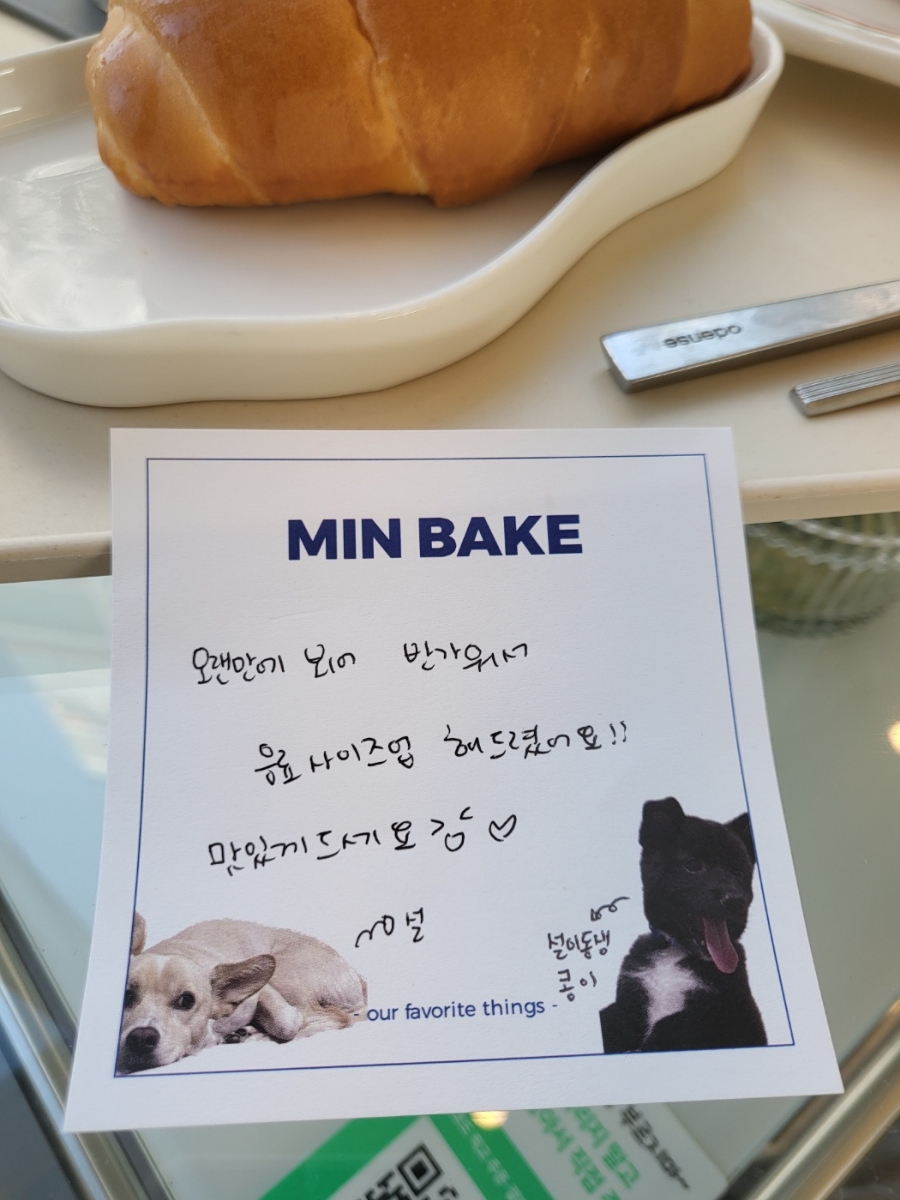 odense
MIN BAKE
오랜만에 뵈어 반가워서
음료 사이즈업 해드렸어요!!
맛있게 드시기요 >.< ♡
설
설이동생
콩이
- our favorite things -